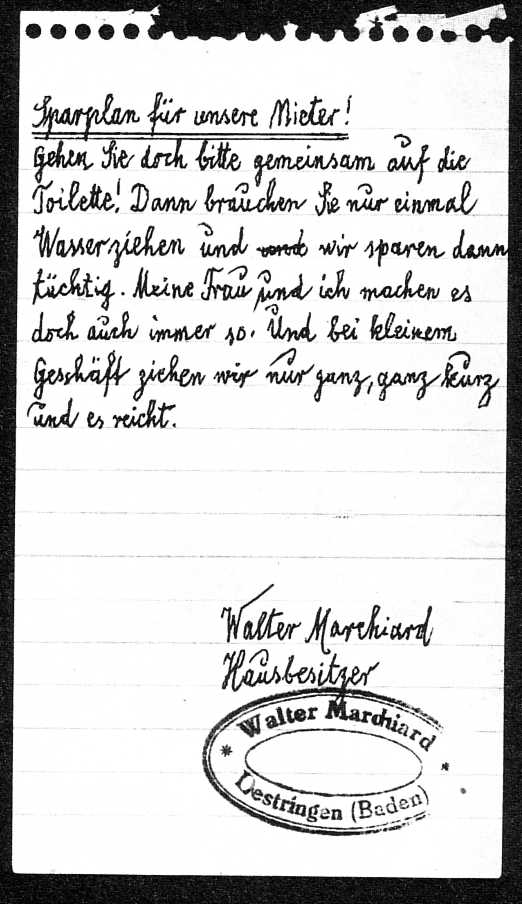 Sparplan für unsere Mieter!
Gehen Sie doch bitte gemeinsam auf die
Toilette! Dann brauchen Sie nur einmal
Wasser ziehen und und wir sparen dann
tüchtig. Meine Frau und ich machen es
doch auch immer so. Und bei kleinem
Geschäft ziehen wir nur ganz, ganz kurz
und es reicht.
Walter Marchiard
Hausbesitzer
* Walter Marchiard *
Oestringen (Baden)